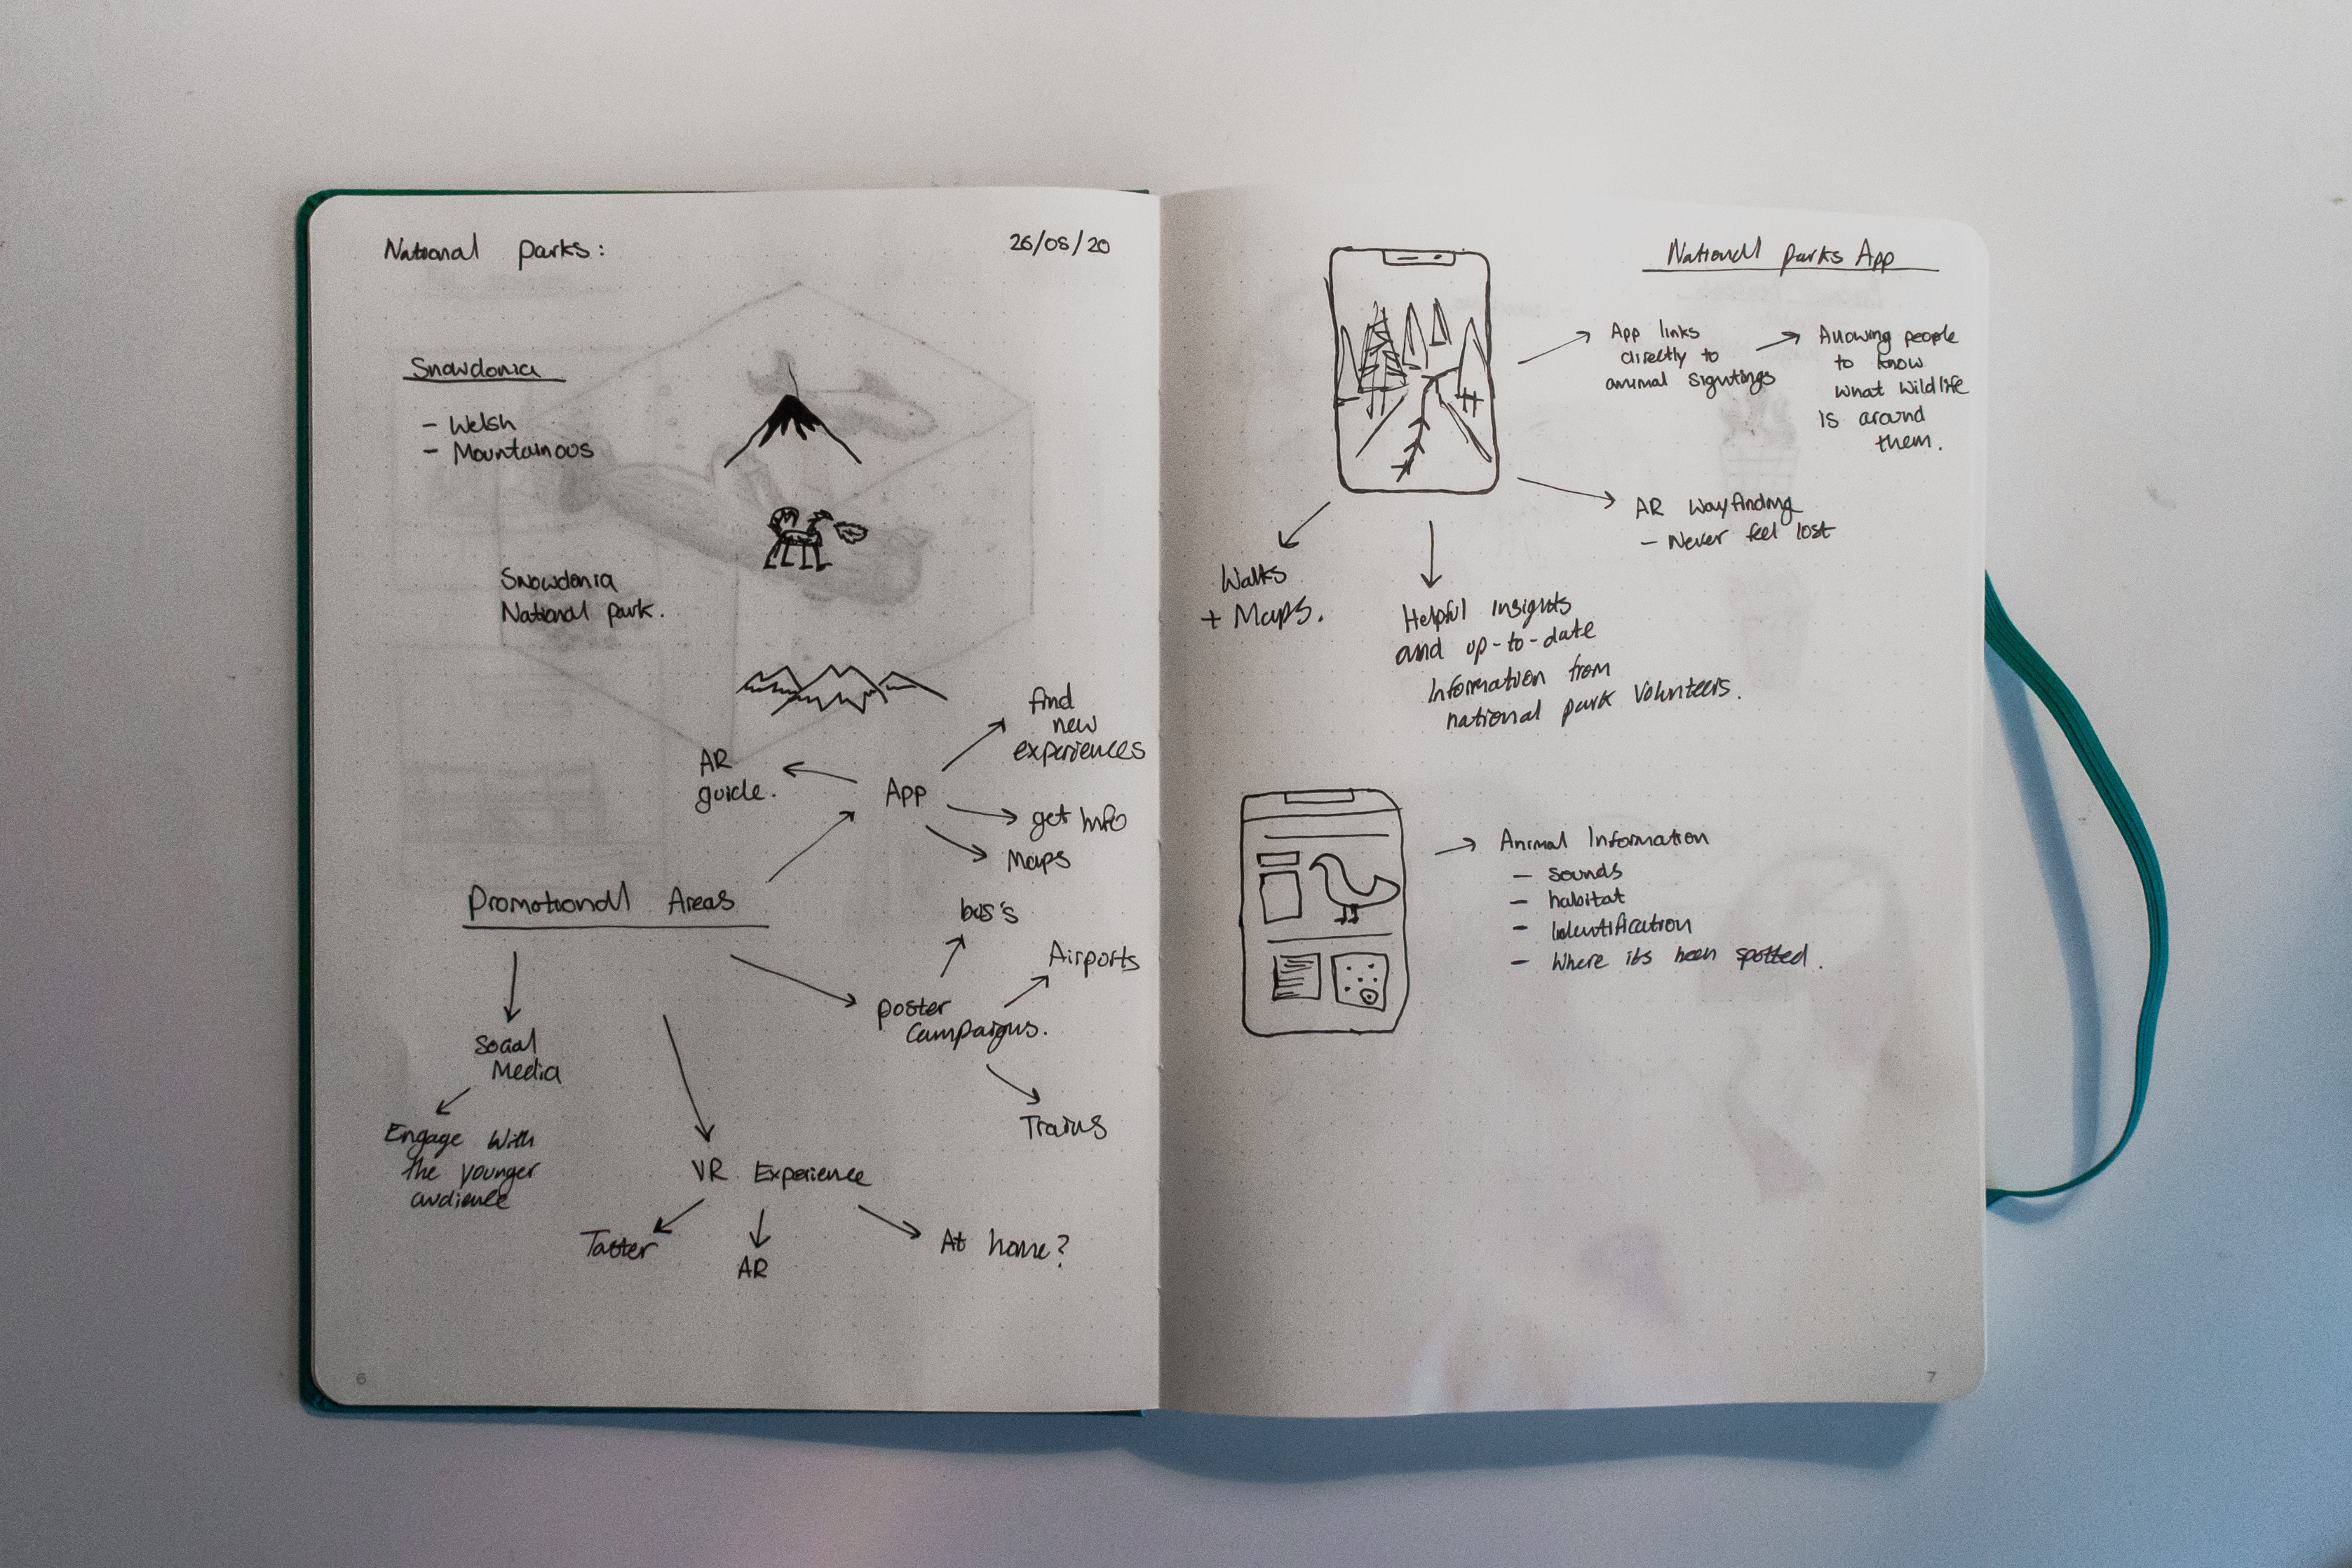 National parks:
26/08/20
Snowdonia
- Welsh
- Mountainous
Snowdonia
National park.
find
new
experiences
AR
guide.
App
get info
Maps
Promotional Areas
bus's
Airports
poster
campaigns.
Trains
Social
Media
Engage with
the younger
audience
VR Experience
Taster
AR
At home?
6
National parks App
App links
directly to
animal sightings
Allowing people
to know
what wildlife
is around
them.
AR Wayfinding
- Never feel lost
Walks
+ Maps.
Helpful insights
and up-to-date
information from
national park volunteers.
Animal Information
- sounds
- habitat
- identification
- Where its been spotted.
7